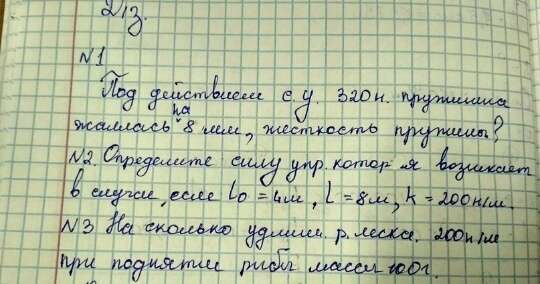 Д/з.
N1
Под действием с.у. 320н. пружина
на
жаллась 8 мм, жесткость пружины?
N2. Определите силу упр. котор я возникает
в случаи, если l0 = 4м, L = 8м, k = 200н/м.
N3 На сколько удлин. р. леска. 200н/м
при поднятии рыбы массы 100г.